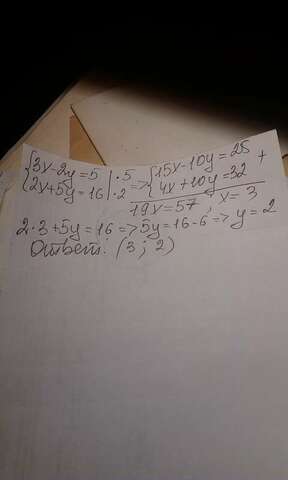 {3x-2y=5 | ·5 => {15x-10y=25 +
{2x+5y=16 | ·2 {4x+10y=32
19x=57, x=3
2·3+5y=16=>5y=16-6=>y=2
Ответ: (3; 2)